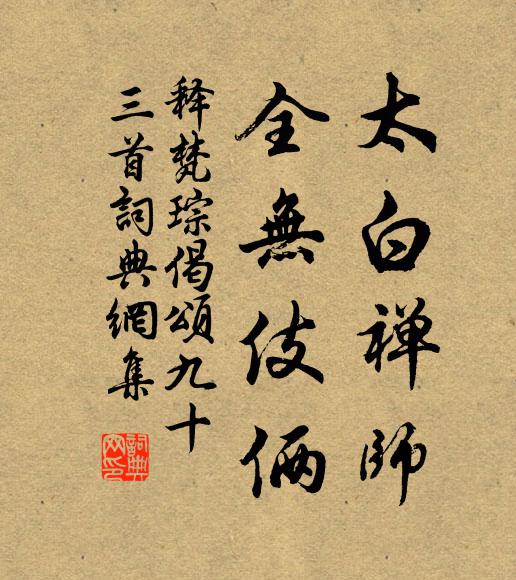 太白禅師
全無伎俩
释梵琮偈頌九十
三首詞典網集
詞典
网印